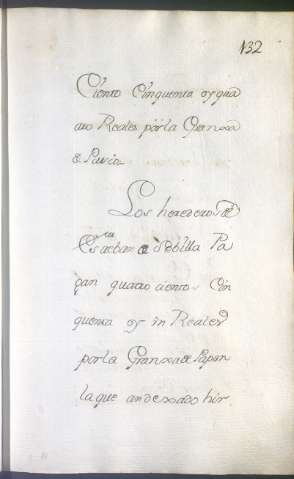 132
Ciento Cinquenta y qua
tro Reales por la Granxa
de Pavia
Los herederos de
Estevan de Sevilla Pa
gan quatro cientos Cin
quenta y un Reales
por la Granxa de Papan
la que an dexado hir